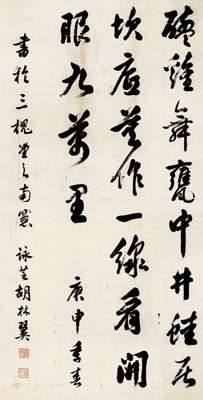 醯雞舞甕中井蛙居
坎底莫作一線看開
眼九萬里 庚申季春
書於三槐堂之南窻 詠芝胡林翼